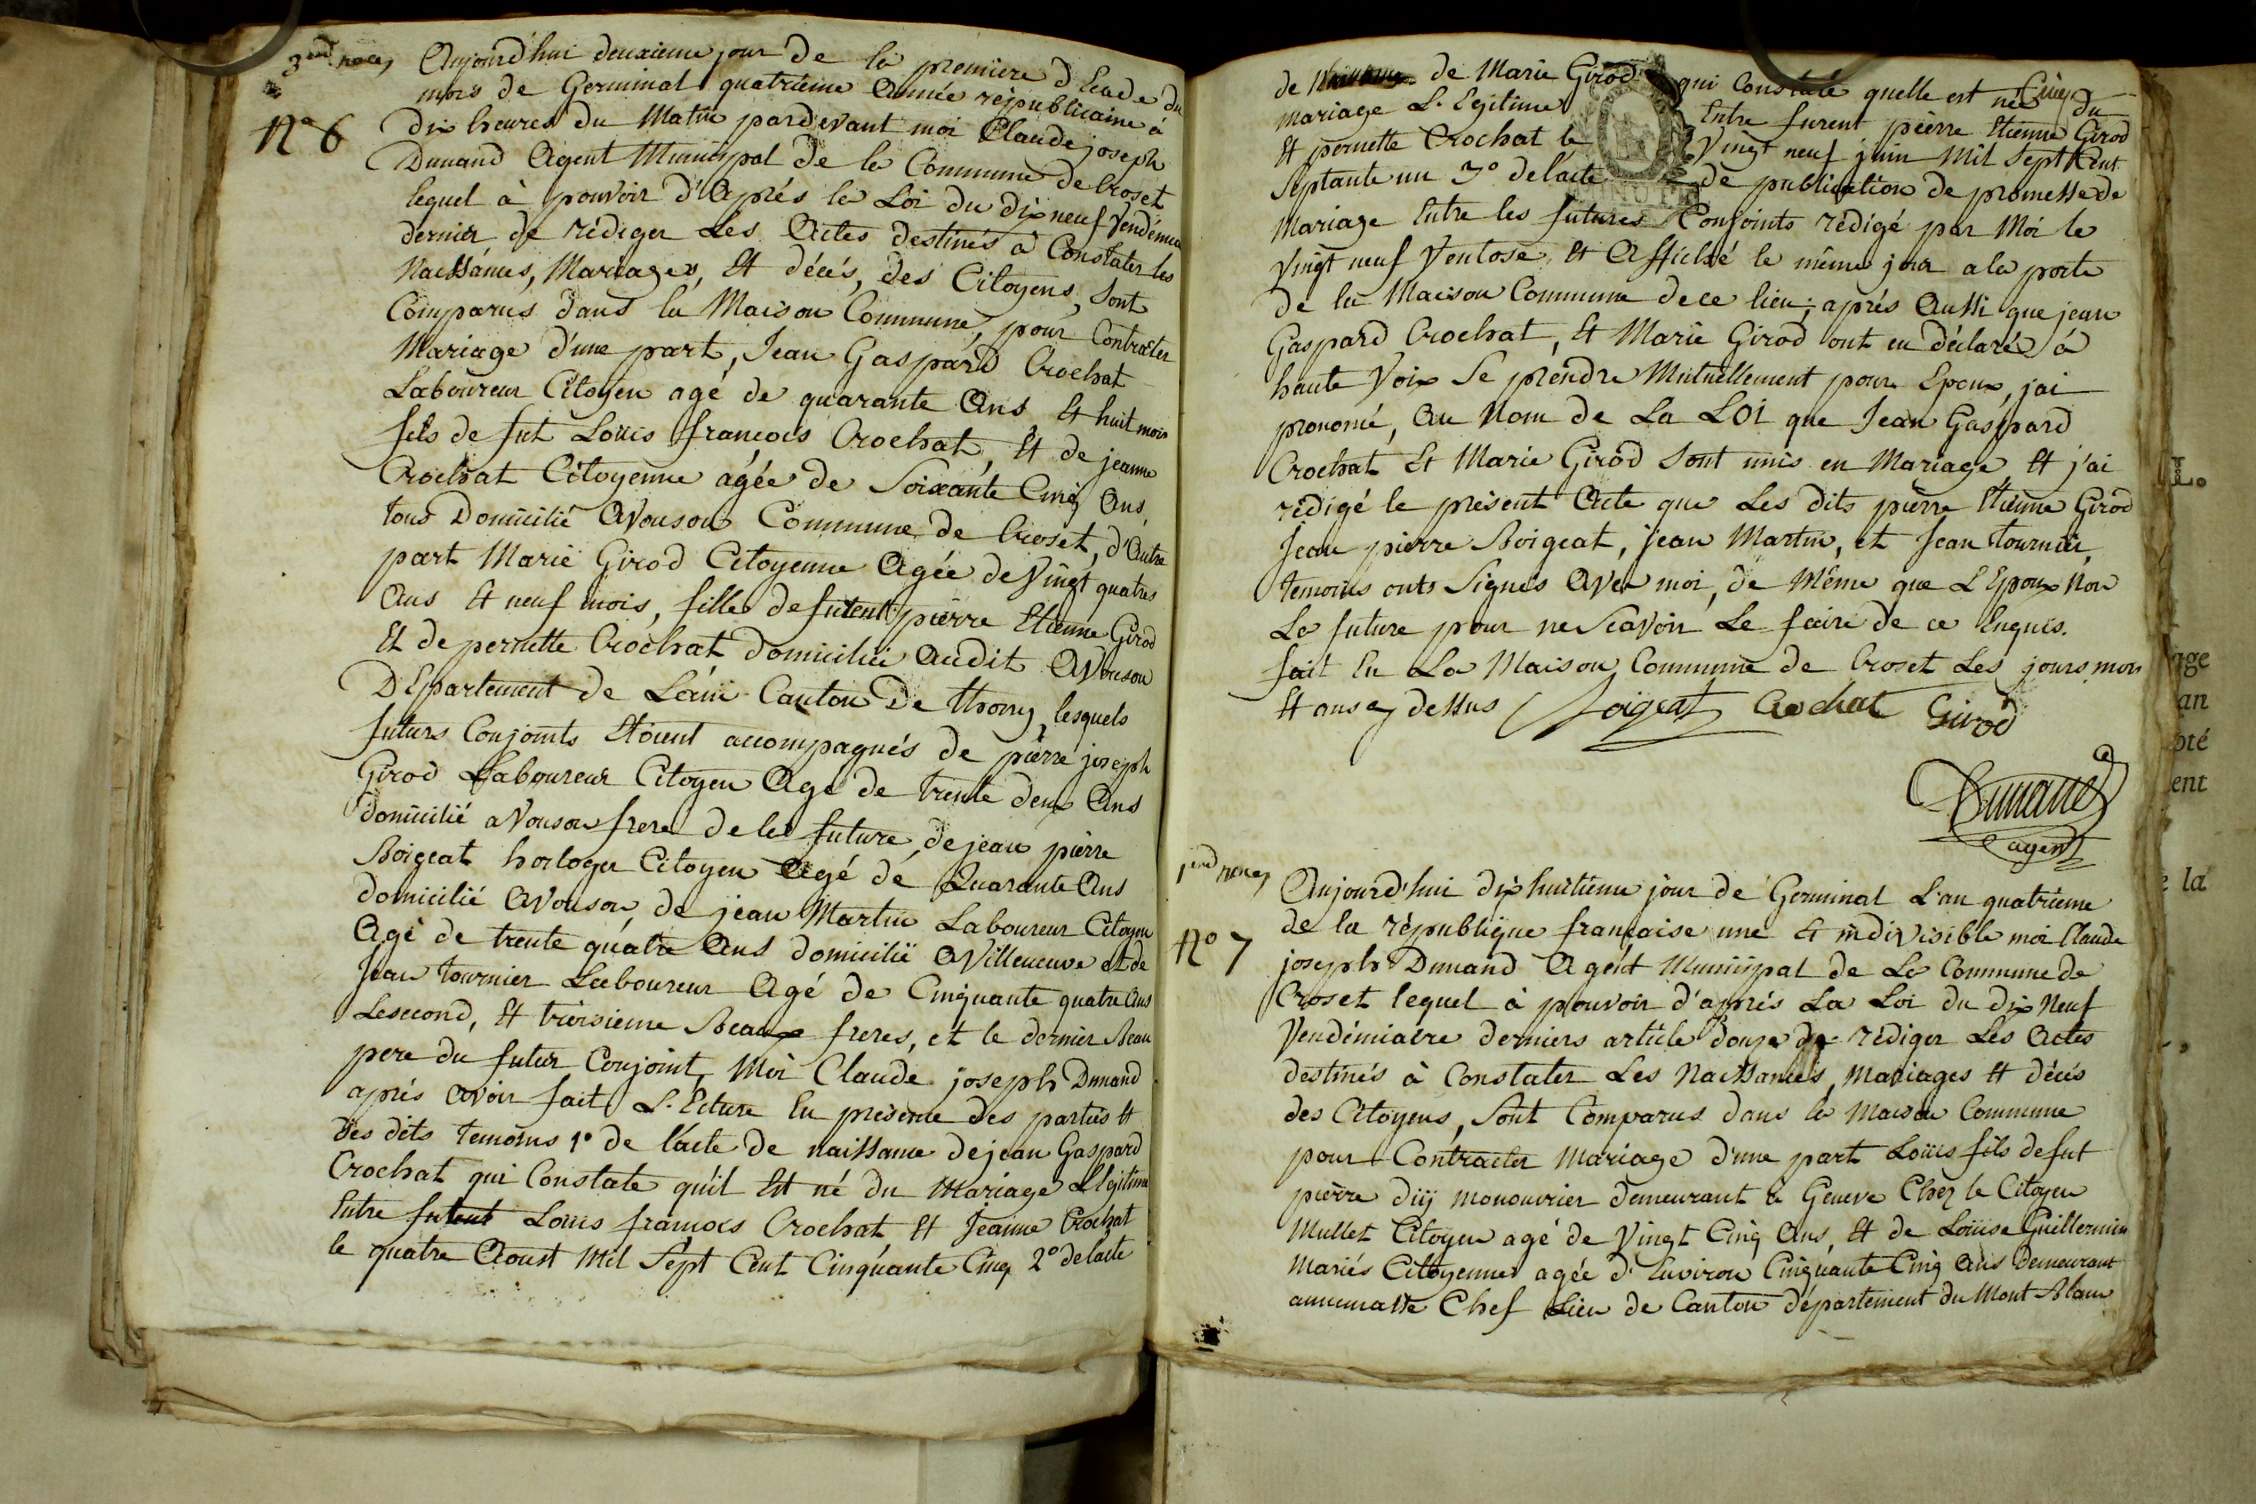 3.me noces
N.o 6
Aujourd'hui deuxieme jour de la premiere d'Ecade du
mois de Germinal quatrieme année républicaine à
Dix heures du Matin pardevant moi Claude joseph
Dunand Agent Municipal de la Commune de Croset
lequel à pouvoir d'Après la Loi du dix neuf Vendémia
dernier de rédiger Les Actes destinés à Constater les
Naissances, Mariages, Et décés, des Citoyens, Sont
Comparus dans la Maison Commune, pour Contracter
Mariage d'une part, Jean Gaspard Crochat
Laboureur Citoyen agé de quarante Ans Et huit mois
fils de fut Loüis françois Crochat, Et de jeanne
Crochat Citoyenne agée de Soixante Cinq Ans,
tous Domicilié Avouson Commune de Croset, d'Autre
part Marie Girod Citoyenne Agée de Vingt quatres
Ans Et neuf mois, fille de futent pierre Etienne Girod
Et de pernette Crochat domicilié audit Avouson
D'Epartement de Lain Canton De thoiry, lesquels
futurs Conjoints Etoient accompagnés de pierre joseph
Girod Laboureur Citoyen Agé de trente deux Ans
domicilié avouson frere de la future, de jean pierre
Boigeat horloger Citoyen Agé de Quarante Ans
domicilié Avouson, de jean Martin Laboureur Citoyen
Agé de trente quatre Ans domicilié a Villeneuve et de
Jean tournier Laboureur Agé de Cinquante quatre Ans
Lesecond, Et troisieme Beaux freres, et le dernier Beau
pere du futur Conjoint, Moi Claude joseph Dunand
après avoir fait L'Ecture En présence des parties Et
des dits temoins 1o de l'acte de naissance de jean Gaspard
Crochat qui Constate qu'il Est né du Mariage L'Egitime
Entre futent Loüis françois Crochat, Et Jeanne Crochat
le quatre Aoust Mil Sept Cent Cinquante Cinq 2o de lacte
de de Marie Girod qui Constaté quelle est née Du
mariage L'Egitime Entre furent pierre Etienne Girod
Et pernette Crochat le Vingt neuf juin Mil Sept Cent
Septante un 3o de lacte de publication de promesse de
Mariage Entre les futures Conjoints rédigé par Moi le
Vingt neuf Ventose Et Affiché le même jour a la porte
de la Maison Commune de ce lieu; après Aussi que jean
Gaspard Crochat, Et Marie Girod ont eu déclaré à
haute Voix Se prendre Mutuellement pour Epoux, jai
pronomé, Au Nom de La LOI que Jean Gaspard
Crochat Et Marie Girod Sont unis en Mariage Et j'ai
rédigé le présent Acte que Les dits pierre Etienne Girod
Jean pierre Boigeat, jean Martin, et Jean tournier,
temoins onts Signés Avec moi, de Même que L'Epoux Non
La future pour ne Scavoir Le faire de ce Enquis.
fait En La Maison Commune de Croset Les jours mois
Et ans cy dessus Boigeat Crochat Girod
Dunand
agent
1.re noces
N.o 7
Aujourd'hui dix huitieme jour de Germinal L'an quatrieme
de la république française une Et indivisible moi Claude
joseph Dunand Agent Municipal de La Commune de
Croset lequel à pouvoir d'après La Loi du dix Neuf
Vendémiaire derniers article douze de rédiger Les Actes
destinés à Constater Les Naissances, Mariages Et décés
des Citoyens, Sont Comparus dans la Maison Commune
pour Contracter Mariage d'une part Loüis fils de fut
pierre diij Monouvrier demeurant à Geneve Chez le Citoyen
Mullet Citoyen agé de Vingt Cinq Ans, Et de Loüise Guillermin
Mariés Citoyennes agée d'Environ Cinquante Cinq Ans Demeurant
annemasse Chef Lieu de Canton département du Mont Blanc
L.
age
an
pté
ent
e la